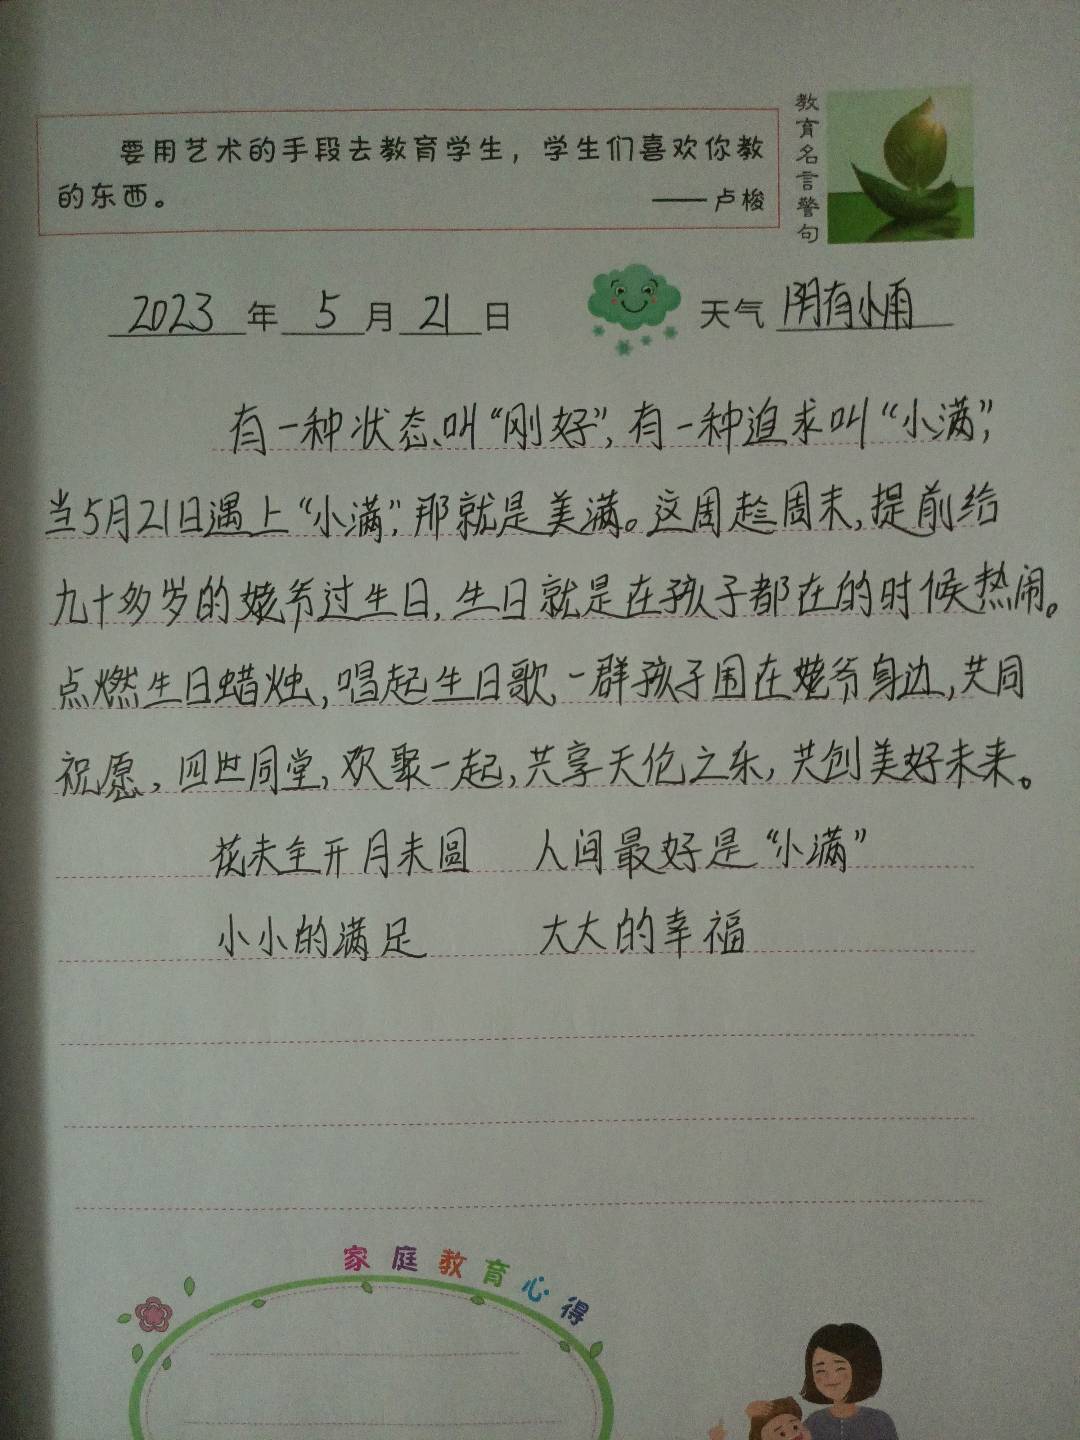 要用艺术的手段去教育学生，学生们喜欢你教
的东西。
——卢梭
教育名言警句
2023年5月21日
天气 阴有小雨
有一种状态叫“刚好”，有一种追求叫“小满”，
当5月21日遇上“小满”，那就是美满。这周趁周末，提前给
九十多岁的姥爷过生日，生日就是在孩子都在的时候热闹。
点燃生日蜡烛，唱起生日歌，一群孩子围在姥爷身边，共同
祝愿，四世同堂，欢聚一起，共享天伦之乐，共创美好未来。
花未全开月未圆 人间最好是“小满”
小小的满足 大大的幸福
家庭教育心得